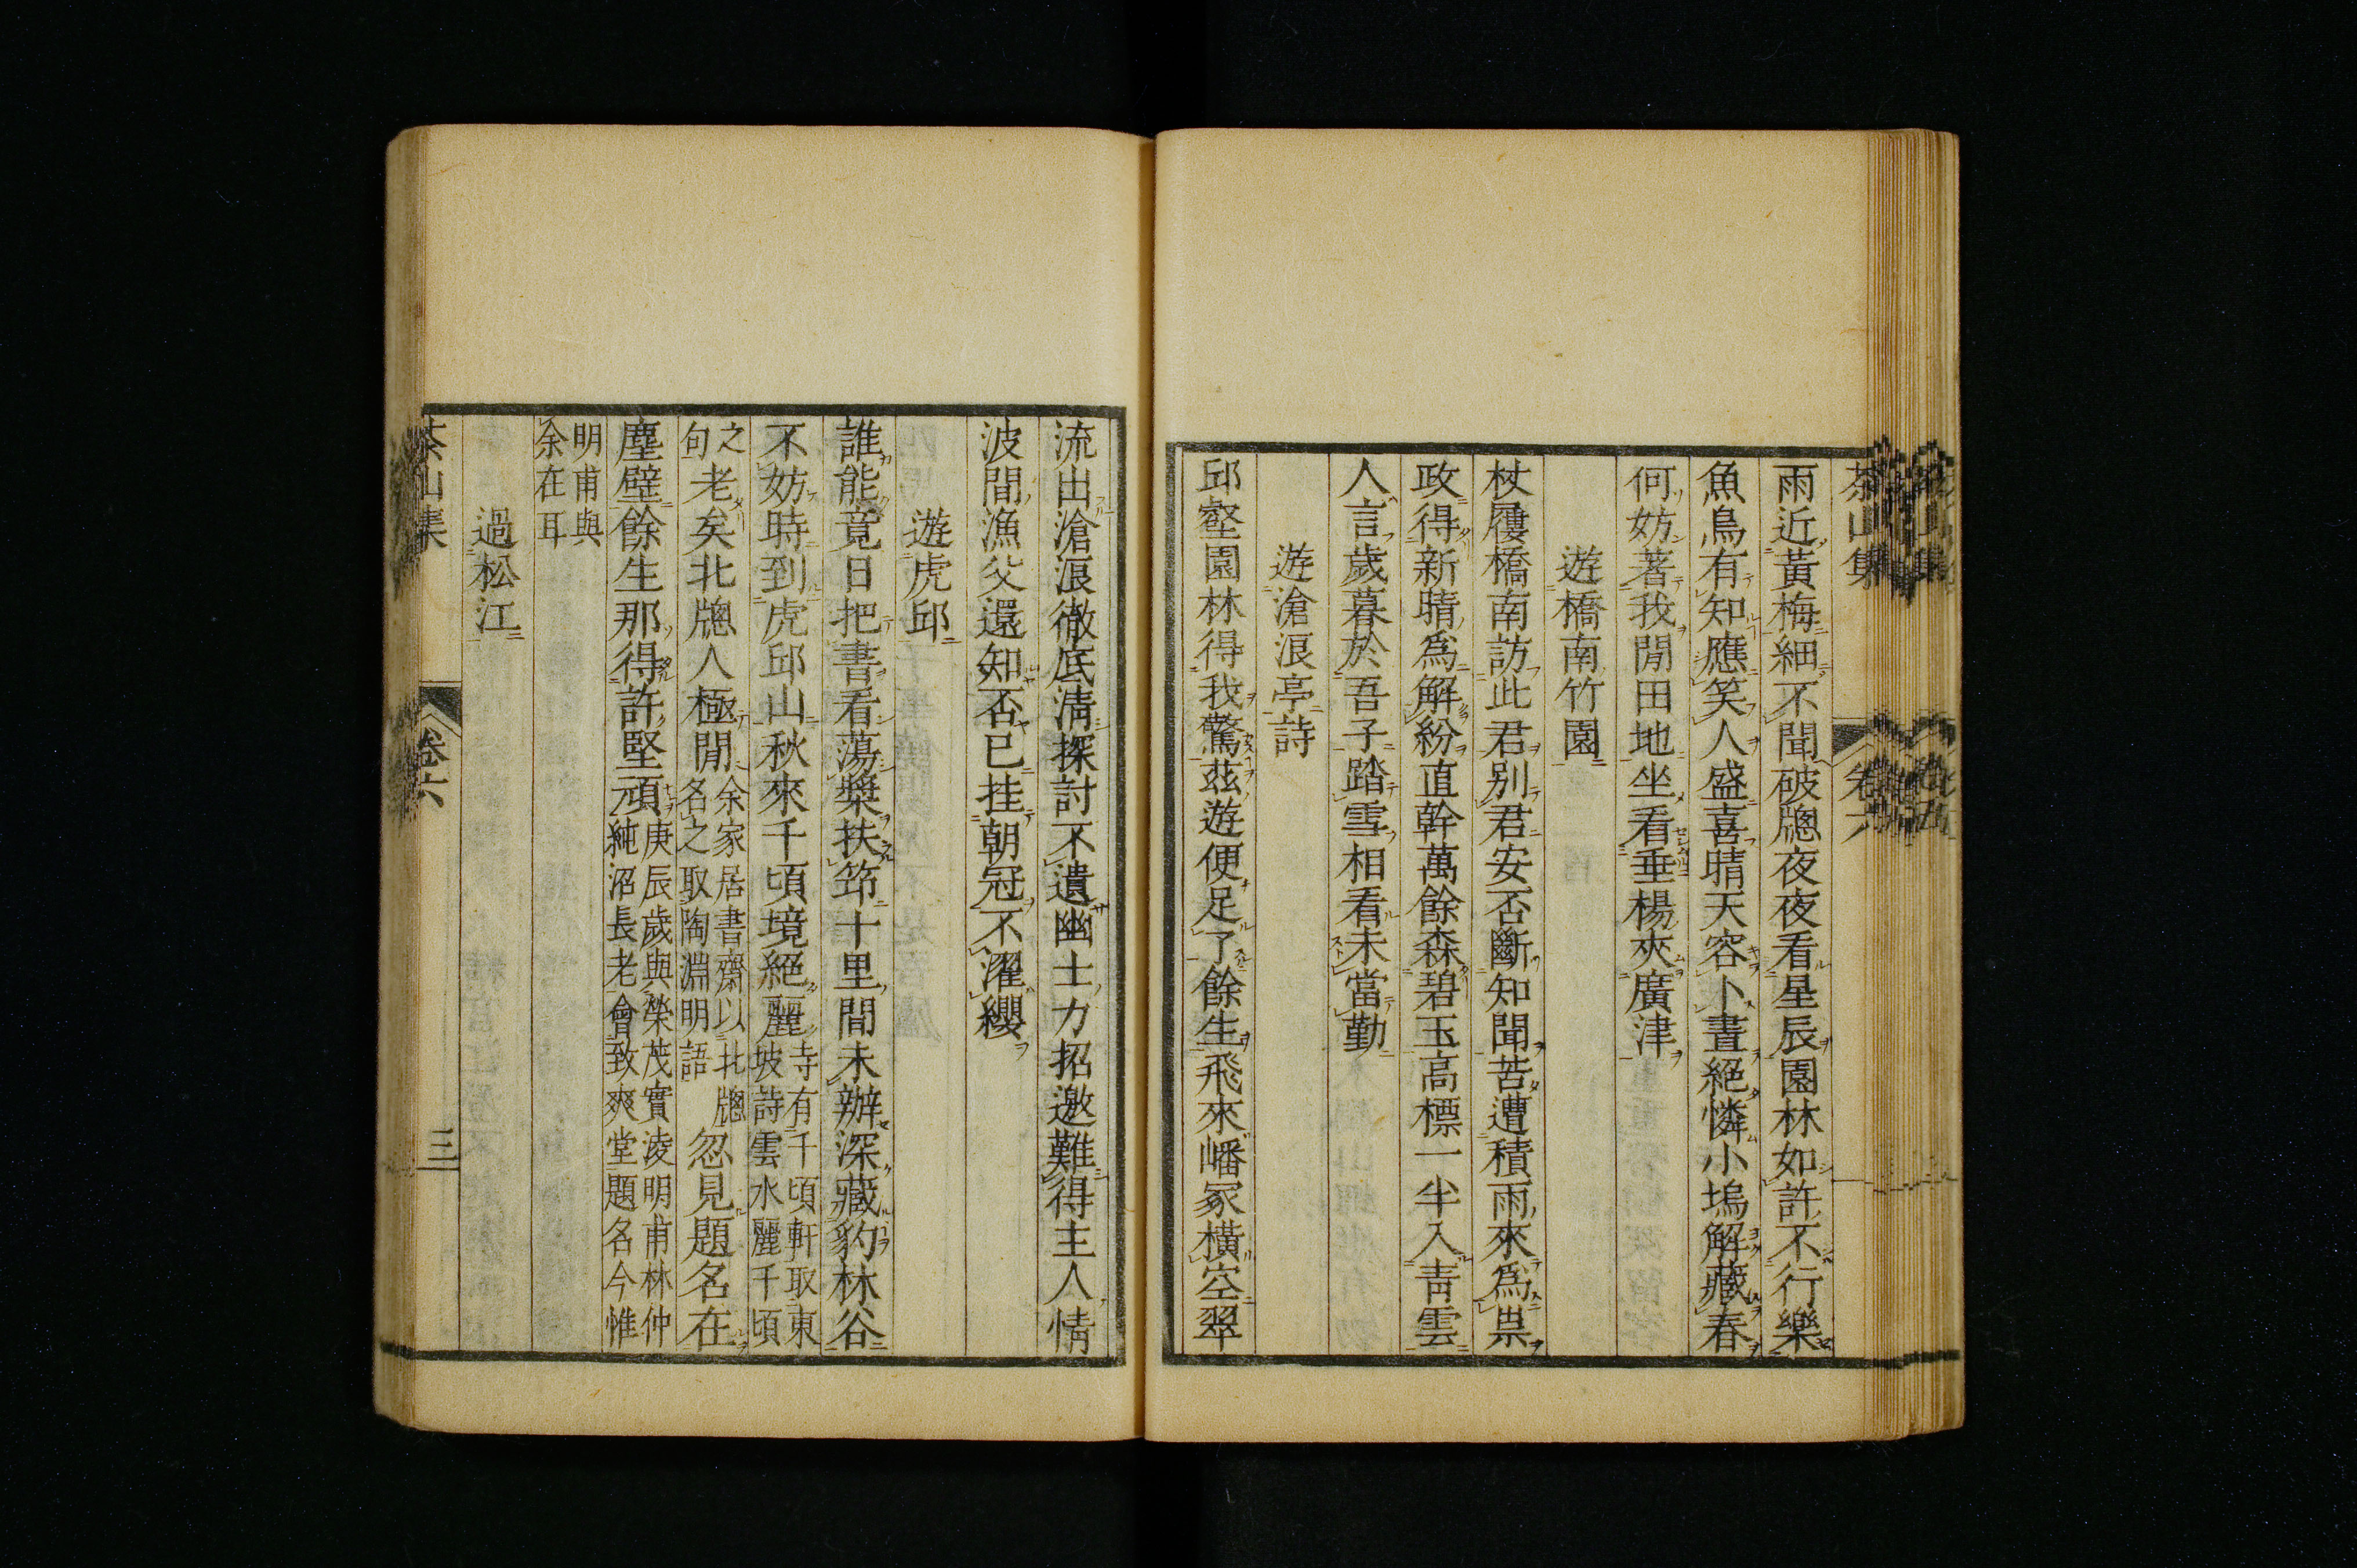 茶山集 卷六
雨近黃梅細不聞破牕夜夜看星辰園林如許不行樂
魚鳥有知應笑人盛喜晴天容卜晝絕憐小塢解藏春
何妨著我閒田地坐看垂楊夾廣津
遊橋南竹園
杖屨橋南訪此君別君安否斷知聞苦遭積雨來爲祟
政得新晴爲解紛直幹萬餘森碧玉高標一半入靑雲
人言歲暮於吾子踏雪相看未當勤
遊滄浪亭詩
邱壑園林得我驚茲遊便足了餘生飛來嶓冢橫空翠
流出滄浪徹底淸探討不遺幽士力招邀難得主人情
波間漁父還知否已挂朝冠不濯纓
遊虎邱
誰能竟日把書看蕩槳扶筇十里間未辦深藏豹林谷
不妨時到虎邱山秋來千頃境絕麗寺有千頃軒取東
坡詩雲水麗千頃
之
句老矣北牕人極閒余家居書齋以北牕
名之取陶淵明語忽見題名在
塵壁餘生那得許堅頑庚辰歲與榮茂實淩明甫林仲
純沼長老會致爽堂題名今惟
明甫與
余在耳
過松江
茶山集 卷六 三